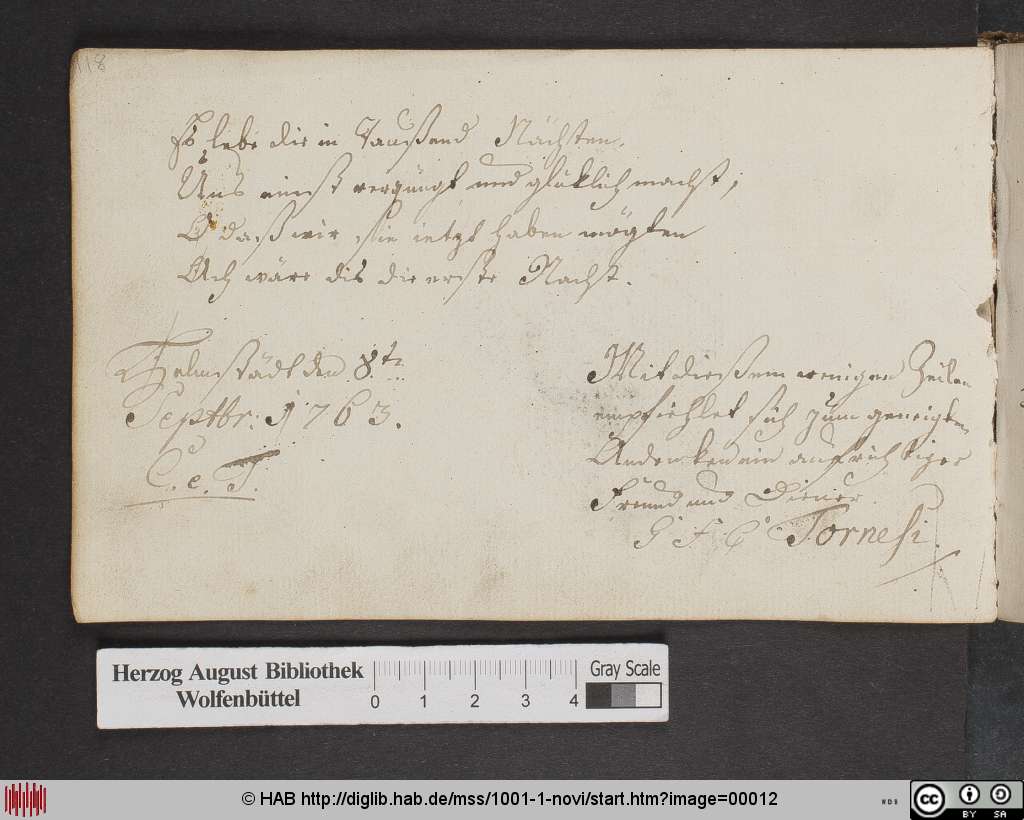 118
So lebe die in Taußend Nächten.
Uns einst vergnügt und glüklich machst,
O daß wir sie ietzt haben mögten
Ach wäre dis die erste Nacht.
Helmstädt den 8te
Septbr: 1763.
C. e. T.
Mit dießem wenigen Zeilen
empfiehlet sich zum geneigten
Andenken ein aufrichtiger
Freund und Diener.
G F C Tornesi.
Herzog August Bibliothek
Wolfenbüttel
0 1 2 3 4
Gray Scale
© HAB http://diglib.hab.de/mss/1001-1-novi/start.htm?image=00012
cc BY SA